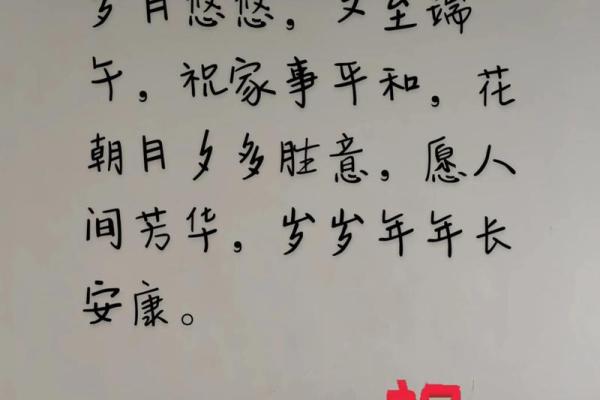 岁月悠悠，又至端
午，祝家事平和，花
朝月夕多胜意，愿人
间芳华，岁岁年年长
安康。